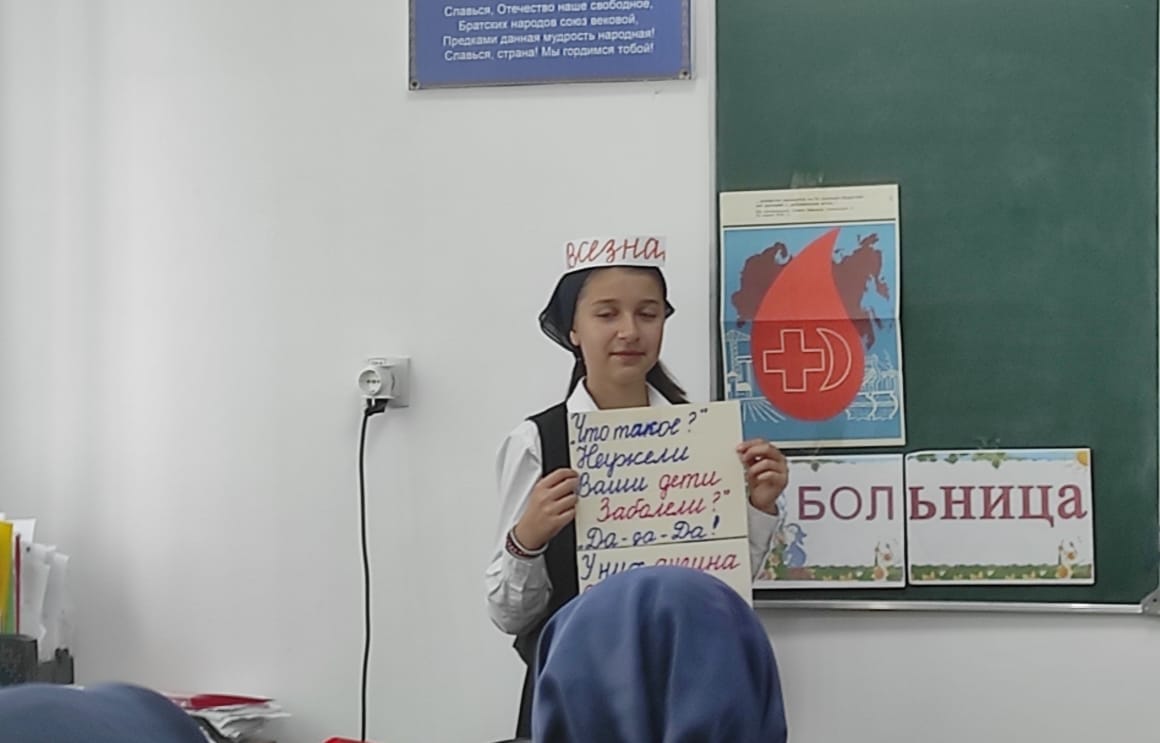 Славься, Отечество наше свободное,
Братских народов союз вековой,
Предками данная мудрость народная!
Славься, страна! Мы гордимся тобой!
Всезна
„Что такое?"
Неужели
Ваши дети
Заболели?"
„Да-да-Да!
У них ангина
БОЛЬНИЦА